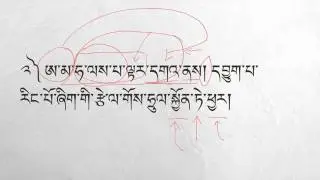 ༢༽ ཨ་མ་ཧ་ལས་པ་ལྟར་དགའ་ནས། དབྱུག་པ་
རིང་པོ་ཞིག་གི་རྩེ་ལ་གོས་ཧྲུལ་སྐྱོན་ཏེ་ཕྱར།